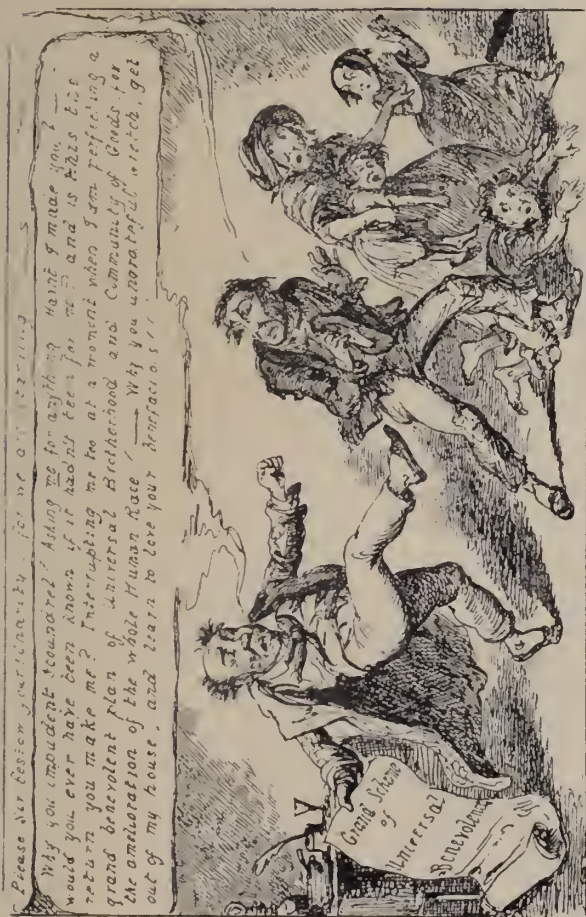 Please Sir bestow your charity, for we are starving
Why you impudent scoundrel! Asking me for anything Havnt I made you? —
would you ever have been known if it hadn't been for me? and is this the
return you make me? Interrupting me too at a moment when I am perfecting a
grand benevolent plan of Universal Brotherhood and Community of Goods for
the amelioration of the whole Human Race! — Why you ungrateful wretch, get
out of my house, and learn to love your benefactors!!! —
Grand Scheme
of
Universal
Benevolence